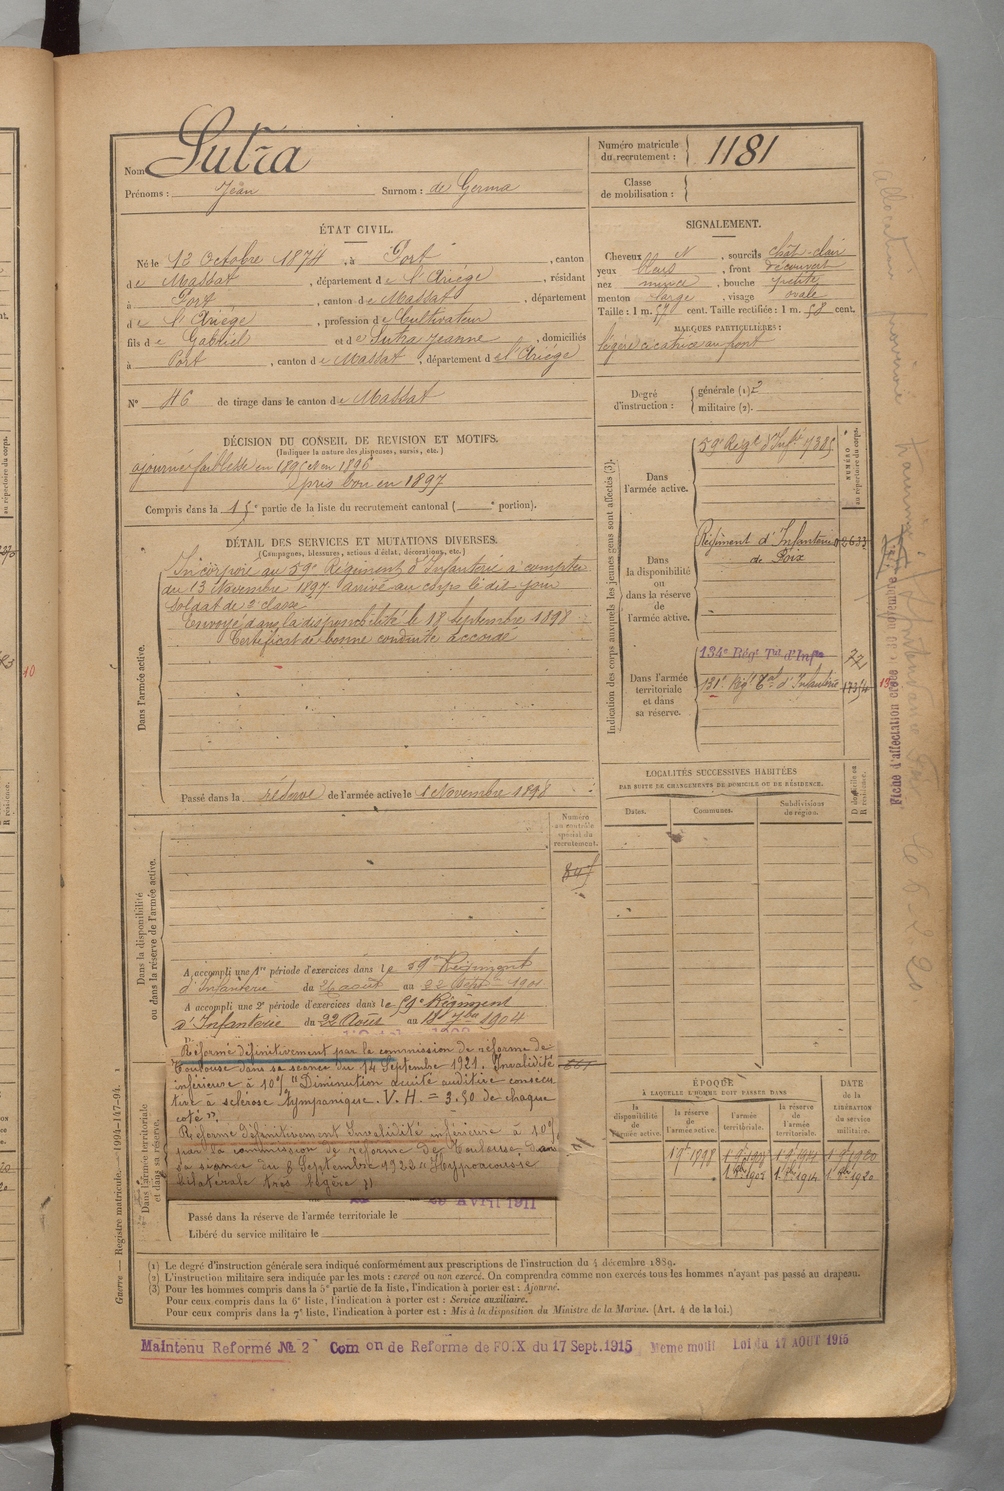 Nom Sutra
Prénoms : Jean Surnom : de Germa
Numéro matricule du recrutement : 1181
Classe de mobilisation :
ÉTAT CIVIL.
Né le 12 Octobre 1874, à Port, canton
de Massat, département de l'Ariège, résidant
à Port, canton de Massat, département
de l'Ariège, profession de Cultivateur
fils de Gabriel et de Sutra Jeanne, domiciliés
à Port, canton de Massat, département de l'Ariège
N° 46 de tirage dans le canton de Massat
SIGNALEMENT.
Cheveux N, sourcils chât-clair
yeux bleus, front découvert
nez mince, bouche petite
menton large, visage ovale
Taille : 1 m. 57 cent. Taille rectifiée : 1 m. 58 cent.
MARQUES PARTICULIÈRES :
légère cicatrice au front
Degré d'instruction : générale (1) 2
militaire (2).
DÉCISION DU CONSEIL DE REVISION ET MOTIFS.
(Indiquer la nature des dispenses, sursis, etc.)
ajourné faiblesse en 1895 et en 1896
pris bon en 1897
Compris dans la 15e partie de la liste du recrutement cantonal ( e portion).
DÉTAIL DES SERVICES ET MUTATIONS DIVERSES.
(Campagnes, blessures, actions d'éclat, décorations, etc.)
Dans l'armée active.
Incorporé au 59e Régiment d'Infanterie à compter
du 13 Novembre 1897 arrivé au corps le dit jour
Soldat de 2e classe
Envoyé dans la disponibilité le 18 septembre 1898
Certificat de bonne conduite accordé
Passé dans la réserve de l'armée active le 1 Novembre 1898
Indication des corps auxquels les jeunes gens sont affectés (3).
NUMÉRO au répertoire du corps.
Dans l'armée active.
59e Régt d'Infie 7385
Dans la disponibilité ou dans la réserve de l'armée active.
Régiment d'Infanterie
de Foix
Dans l'armée territoriale et dans sa réserve.
134e Régt Tal d'Infie
131e Rigt Tal d'Infanterie
LOCALITÉS SUCCESSIVES HABITÉES
PAR SUITE DE CHANGEMENTS DE DOMICILE OU DE RÉSIDENCE.
Dates. Communes. Subdivisions de région. D domicile ou R résidence.
Dans la disponibilité ou dans la réserve de l'armée active.
Numéro au contrôle spécial du recrutement.
A accompli une 1re période d'exercices dans le 59e Régiment
d'Infanterie du 26 août au 22 1901
A accompli une 2e période d'exercices dans le 59e Régiment
d'Infanterie du 22 Août au 18 7bre 1904
Dans l'armée territoriale et dans sa réserve.
Réformé définitivement par la commission de réforme de
Toulouse dans sa séance du 14 Septembre 1921. Invalidité
inférieure à 10% "Diminution acuité auditive consécu
tive à sclérose tympanique. V.H. = 3.50 de chaque
coté".
Réformé définitivement Invalidité inférieure à 10%
par la commission de réforme de Toulouse dans
sa séance du 8 Septembre 1923 "Hypoacousie
bilatérale très légère"
29 AVRIL 1911
Passé dans la réserve de l'armée territoriale le
Libéré du service militaire le
ÉPOQUE
À LAQUELLE L'HOMME DOIT PASSER DANS
la disponibilité de l'armée active. la réserve de l'armée active. l'armée territoriale. la réserve de l'armée territoriale.
DATE DE LA LIBÉRATION du service militaire.
1 9bre 1898
1 8bre 1908 1 8bre 1914 1 8bre 1920
Guerre — Registre matricule. — 1994-147-94.
(1) Le degré d'instruction générale sera indiqué conformément aux prescriptions de l'instruction du 4 décembre 1889.
(2) L'instruction militaire sera indiquée par les mots : exercé ou non exercé. On comprendra comme non exercés tous les hommes n'ayant pas passé au drapeau.
(3) Pour les hommes compris dans la 5e partie de la liste, l'indication à porter est : Ajourné.
Pour ceux compris dans la 6e liste, l'indication à porter est : Service auxiliaire.
Pour ceux compris dans la 7e liste, l'indication à porter est : Mis à la disposition du Ministre de la Marine. (Art. 4 de la loi.)
Maintenu Reformé No 2 Com on de Reforme de FOIX du 17 Sept. 1915 Meme motif Loi du 17 AOUT 1915